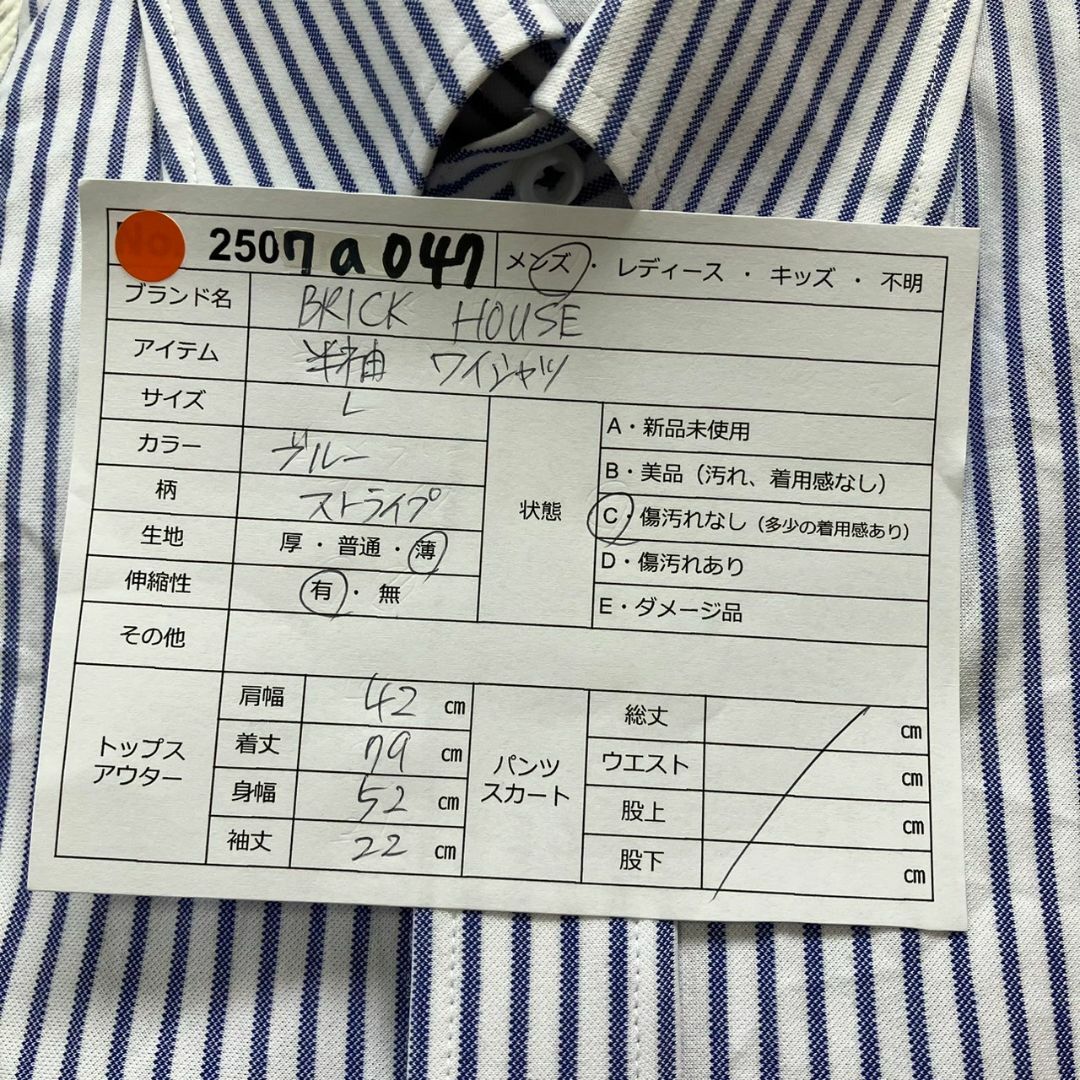 No 2507a047 メンズ ・ レディース ・ キッズ ・ 不明
ブランド名 BRICK HOUSE
アイテム 半袖 ワイシャツ
サイズ L
カラー ブルー
柄 ストライプ
生地 厚 ・ 普通 ・ 薄
伸縮性 有 ・ 無
状態
A・新品未使用
B・美品（汚れ、着用感なし）
C・傷汚れなし（多少の着用感あり）
D・傷汚れあり
E・ダメージ品
その他
トップス
アウター
肩幅 42 ㎝
着丈 79 ㎝
身幅 52 ㎝
袖丈 22 ㎝
パンツ
スカート
総丈 ㎝
ウエスト ㎝
股上 ㎝
股下 ㎝